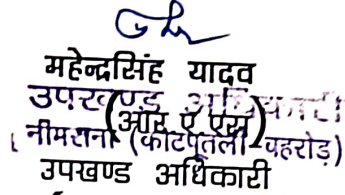 महेन्द्रसिंह यादव
उपखण्ड अधिकारी
(आर ए एस)
नीमराना (कोटपूतली-बहरोड़)
उपखण्ड अधिकारी